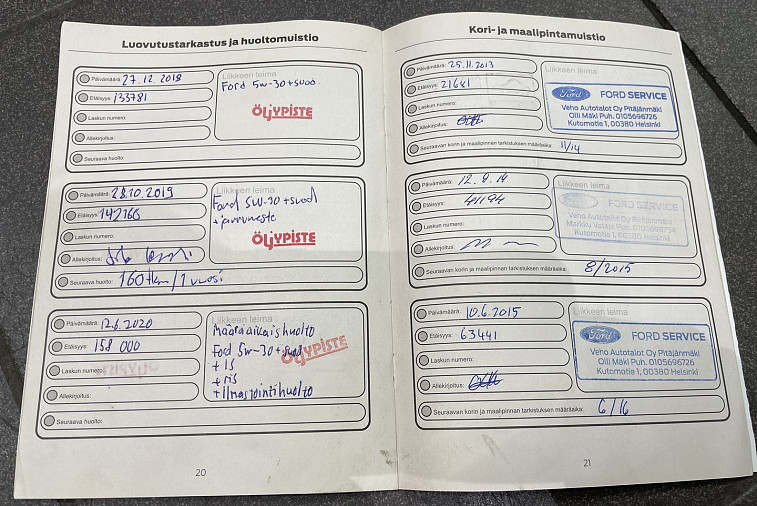 Luovutustarkastus ja huoltomuistio
Päivämäärä: 27.12.2018
Etäisyys: 133781
Laskun numero:
Allekirjoitus:
Seuraava huolto:
Liikkeen leima
Ford 5w-30 + suod.
ÖLJYPISTE
Päivämäärä: 28.10.2019
Etäisyys: 147166
Laskun numero:
Allekirjoitus:
Seuraava huolto: 160tkm/1 vuosi
Liikkeen leima
Ford 5W-30 + suod
+ jarruneste
ÖLJYPISTE
Päivämäärä: 12.6.2020
Etäisyys: 158 000
Laskun numero:
Allekirjoitus:
Seuraava huolto:
Liikkeen leima
Määräaikaishuolto
Ford 5w-30 + suod
+ IS
+ RS
+ Ilmastointihuolto
ÖLJYPISTE
20
Kori- ja maalipintamuistio
Päivämäärä: 25.11.2013
Etäisyys: 21681
Laskun numero:
Allekirjoitus:
Seuraavan korin ja maalipinnan tarkistuksen määräaika: 11/14
Liikkeen leima
Ford FORD SERVICE
Veho Autotalot Oy Pitäjänmäki
Olli Mäki Puh. 0105696726
Kutomotie 1, 00380 Helsinki
Päivämäärä: 12.9.14
Etäisyys: 41194
Laskun numero:
Allekirjoitus:
Seuraavan korin ja maalipinnan tarkistuksen määräaika: 8/2015
Liikkeen leima
Ford FORD SERVICE
Veho Autotalot Oy Pitäjänmäki
Markku Vataja Puh. 0105696734
Kutomotie 1, 00380 Helsinki
Päivämäärä: 10.6.2015
Etäisyys: 63441
Laskun numero:
Allekirjoitus:
Seuraavan korin ja maalipinnan tarkistuksen määräaika: 6/16
Liikkeen leima
Ford FORD SERVICE
Veho Autotalot Oy Pitäjänmäki
Olli Mäki Puh. 0105696726
Kutomotie 1, 00380 Helsinki
21